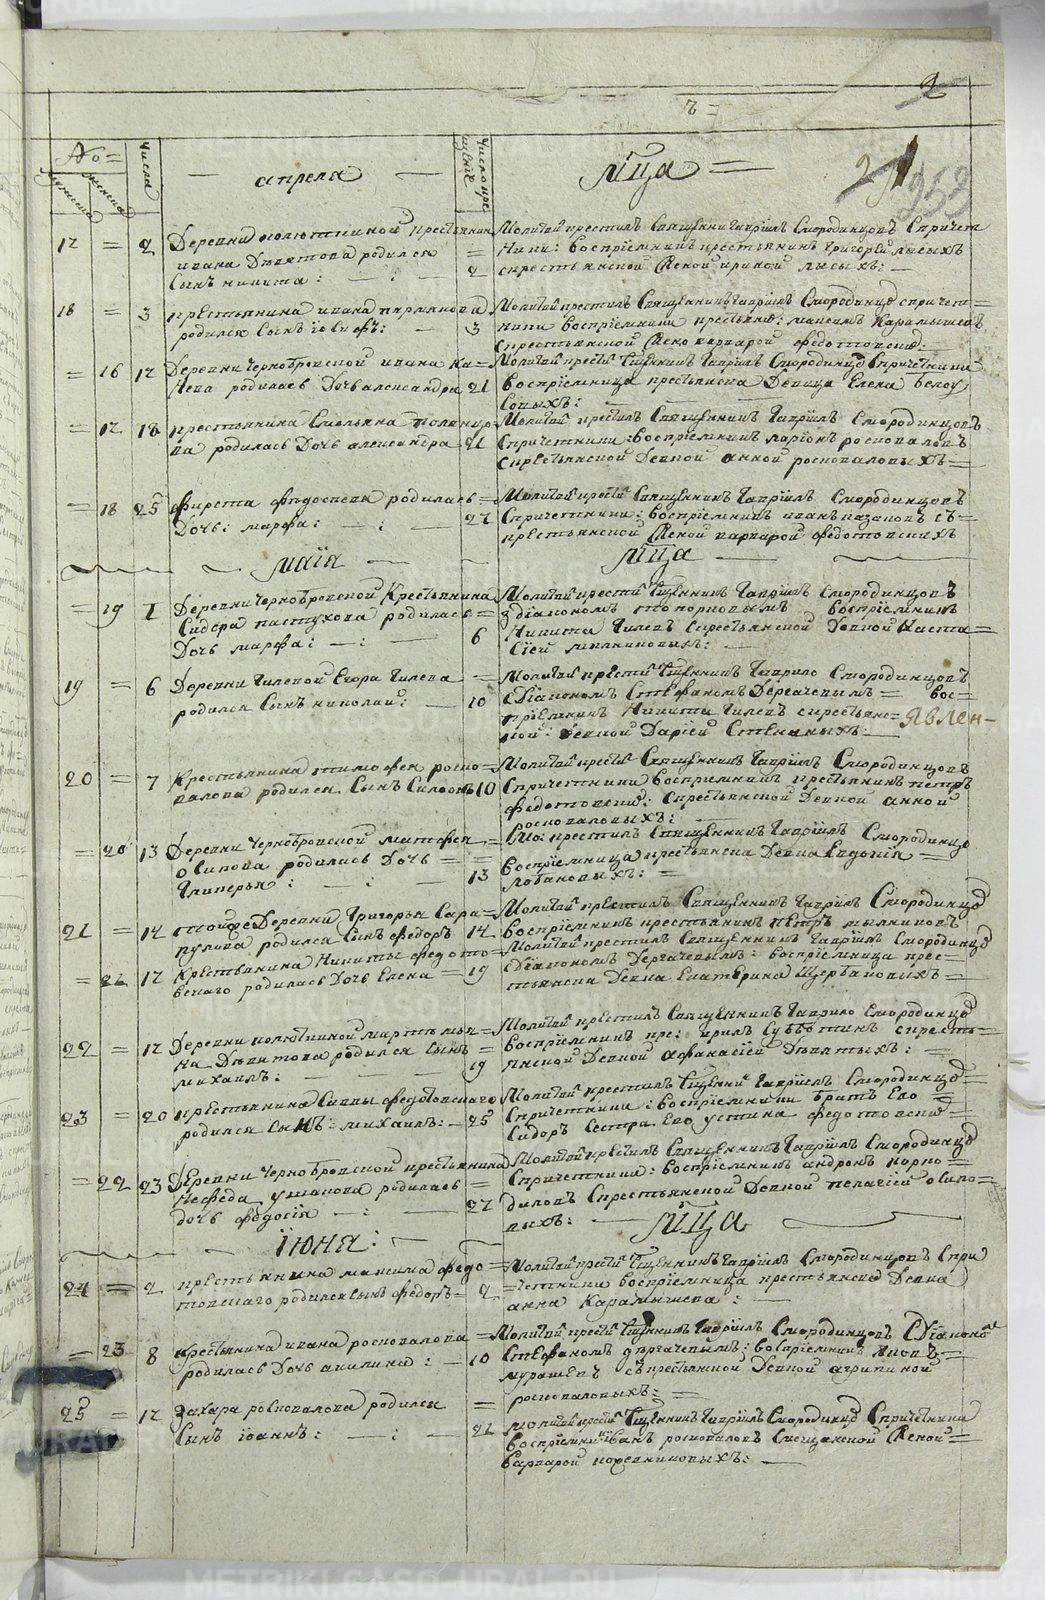 2
No=
числа
апреля
число кре
щения
мца
253
17 = 2 Деревни колюткиной крестьянин
ивана Девятова родился =
Сынъ никита: 2
Молитвой крестилъ Священникъ Гавріилъ Смородинцовъ Спричет
Ники: воспріемникъ крестьянинъ григорей лысыхъ
скрестьянской Женой ириной лысыхъ:
18 = 3 крестьянина ивана
родился Сынъ іосифъ: 3
Молитвой крестилъ Священникъ Гавріилъ Смородинцо спричет=
ники воспріемники крестьяне: максимъ Карамышевъ
скрестьянской Жено варварой федотовские:
= 16 17 Деревни Чернобровской ивана Ка=
Нева родилась Дочь александра 21
Молитвой крести Сщенникъ Гавріилъ Смородинцо Спричетники
воспріемница крестьянска Девица Елена белоу
совыхъ:
= 17 18 крестьянина
ва родилась Дочь александра 21
Молитвой крестилъ Священникъ Гавріилъ Смородинцовъ
Спричетники: воспріемникъ ларіонъ роспоповъ
Скрестьянской Девкой анной роспоповыхъ=
= 18 25 фирста федосеева родилась=
Дочь: марфа: 27
Молитвой крести Священникъ Гавріилъ Смородинцовъ
Спричетники: воспріемникъ иванъ казаковъ съ=
крестьянской Женой варварой федотовскихъ
маія
мца
= 19 1 Деревни чернобровской Крестьянина
Сидора пастухова родилась=
Дочь марфа: 6
Молитвой крести Сщенникъ Гавріилъ Смородинцовъ
здіакономъ топорковымъ воспріемникъ
Никита Чилевъ Скрестьянской Девкой Наста=
Сіей
19 = 6 Деревни Чилевой Егора Чилева =
родился Сынъ николай: 10
Молитвой крести Сщенникъ Гаврило Смородинцовъ
Сдіакономъ Стефаномъ Дергачевымъ= вос=
пріемникъ Никита Чилевъ скрестьянс=
кой: Девкой Дарьей Стениныхъ:
явлен-
20 = 7 Крестьянина тимофея роспо=
попова родился Сынъ Симеонъ 10
Молитвой крести Священникъ Гавріилъ Смородинцовъ
Спричетники воспріемникъ крестьянинъ петръ
федотовские: Скрестьянской Девкой анной
роспоповыхъ:
= 20 13 Деревни чернобровской матфея
осипова родилась Дочь =
Гликерья: 13
Мо: крестилъ Священникъ Гавріилъ Смородинцо
воспріемница крестьянска Девка Евдокія =
лобановыхъ:=
21 = 14 тойже Деревни Григорья Сара=
пулова родился Сынъ федоръ 14
Молитвой крестилъ Священникъ Гавріилъ Смородинцо
воспріемникъ крестьянинъ петръ мылниковъ
= 21 17 Крестьянина Никиты федото=
вскаго родилась Дочь Елена= 19
Молитвой крестилъ Священникъ Гавріилъ Смородинцо
Сдіакономъ Дергачевымъ: воспріемница крес=
тьянска Девка Екатерина Щербаковыхъ=
22 = 17 Деревни колюткиной мартемья=
на Девятова родился Сынъ=
михаилъ: 19
Молитвой крестилъ Священникъ Гаврило Смородинцо
воспріемникъ кре: кирилъ Субботинъ скресть=
янской Девкой афанасіей Девятыхъ:
23 = 20 крестьянина Саввы федотовскаго
родился Сынъ: михаилъ: 25
Молитвой крестилъ Сщенни Гавріилъ Смородинцо=
Спричетники: воспріемники братъ Ево =
Сидоръ Сестра Ево устина федотовские=
= 22 23 Деревни Чернобровской крестьянина
Нефеда ушакова родилась =
дочь федосія 27
Молитвой крестилъ Священникъ Гавріилъ Смородинцо
Спричетники: воспріемникъ андронъ корпо=
диловъ Скрестьянской Девкой пелагіей осипо=
выхъ:
іюня:
мца
24 = 2 крестьянина максима федо=
товскаго родился сынъ федоръ= 2
Молитвой крести Сщенникъ Гавріилъ Смородинцовъ Спри
=четники воспріемница крестьянска Девка
анна Карамышева:
= 23 8 крестьянина ивана роспопова
родилась Дочь акилина: 10
Молитвой крести Сщенникъ Гавріилъ Смородинцовъ Сдіакономъ
Стефаномъ дергачевымъ: воспріемникъ яковъ=
мурашевъ съ крестьянской Девкой агрипиной
роспоповыхъ:=
25 = 17 Захара роспопова родился =
Сынъ іоаннъ: 21
молитвой крести Сщенникъ Гавріилъ Смородинцо Спричетники
воспріемникъ иванъ роспоповъ Смещанской Женой=
Варварой кожевниковыхъ: